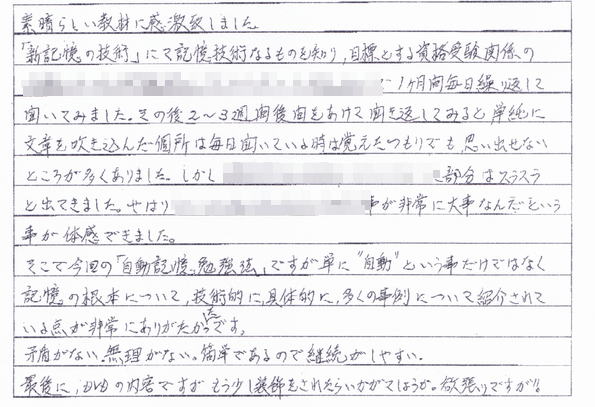 素晴らしい教材に感激致しました
「新記憶の技術」にて記憶技術なるものを知り、目標とする資格受験関係の
1ヶ月間毎日繰り返して
聞いてみました。その後2～3週間後間をあけて聞き返してみると単純に
文章を吹き込んだ個所は毎日聞いている時は覚えたつもりでも、思い出せない
ところが多くありました。しかし 部分はスラスラ
と出てきました。やはり 事が非常に大事なんだという
事が体感できました。
そこで今回の「自動記憶勉強法」ですが単に"自動"という事だけではなく
記憶の根本について、技術的に、具体的に、多くの事例について紹介されて
いる点が非常にありがたい点です。
矛盾がない、無理がない。簡単であるので継続がしやすい。
最後に、DVDの内容ですがもう少し装飾をされたらいかがでしょうか。欲張りですが!!